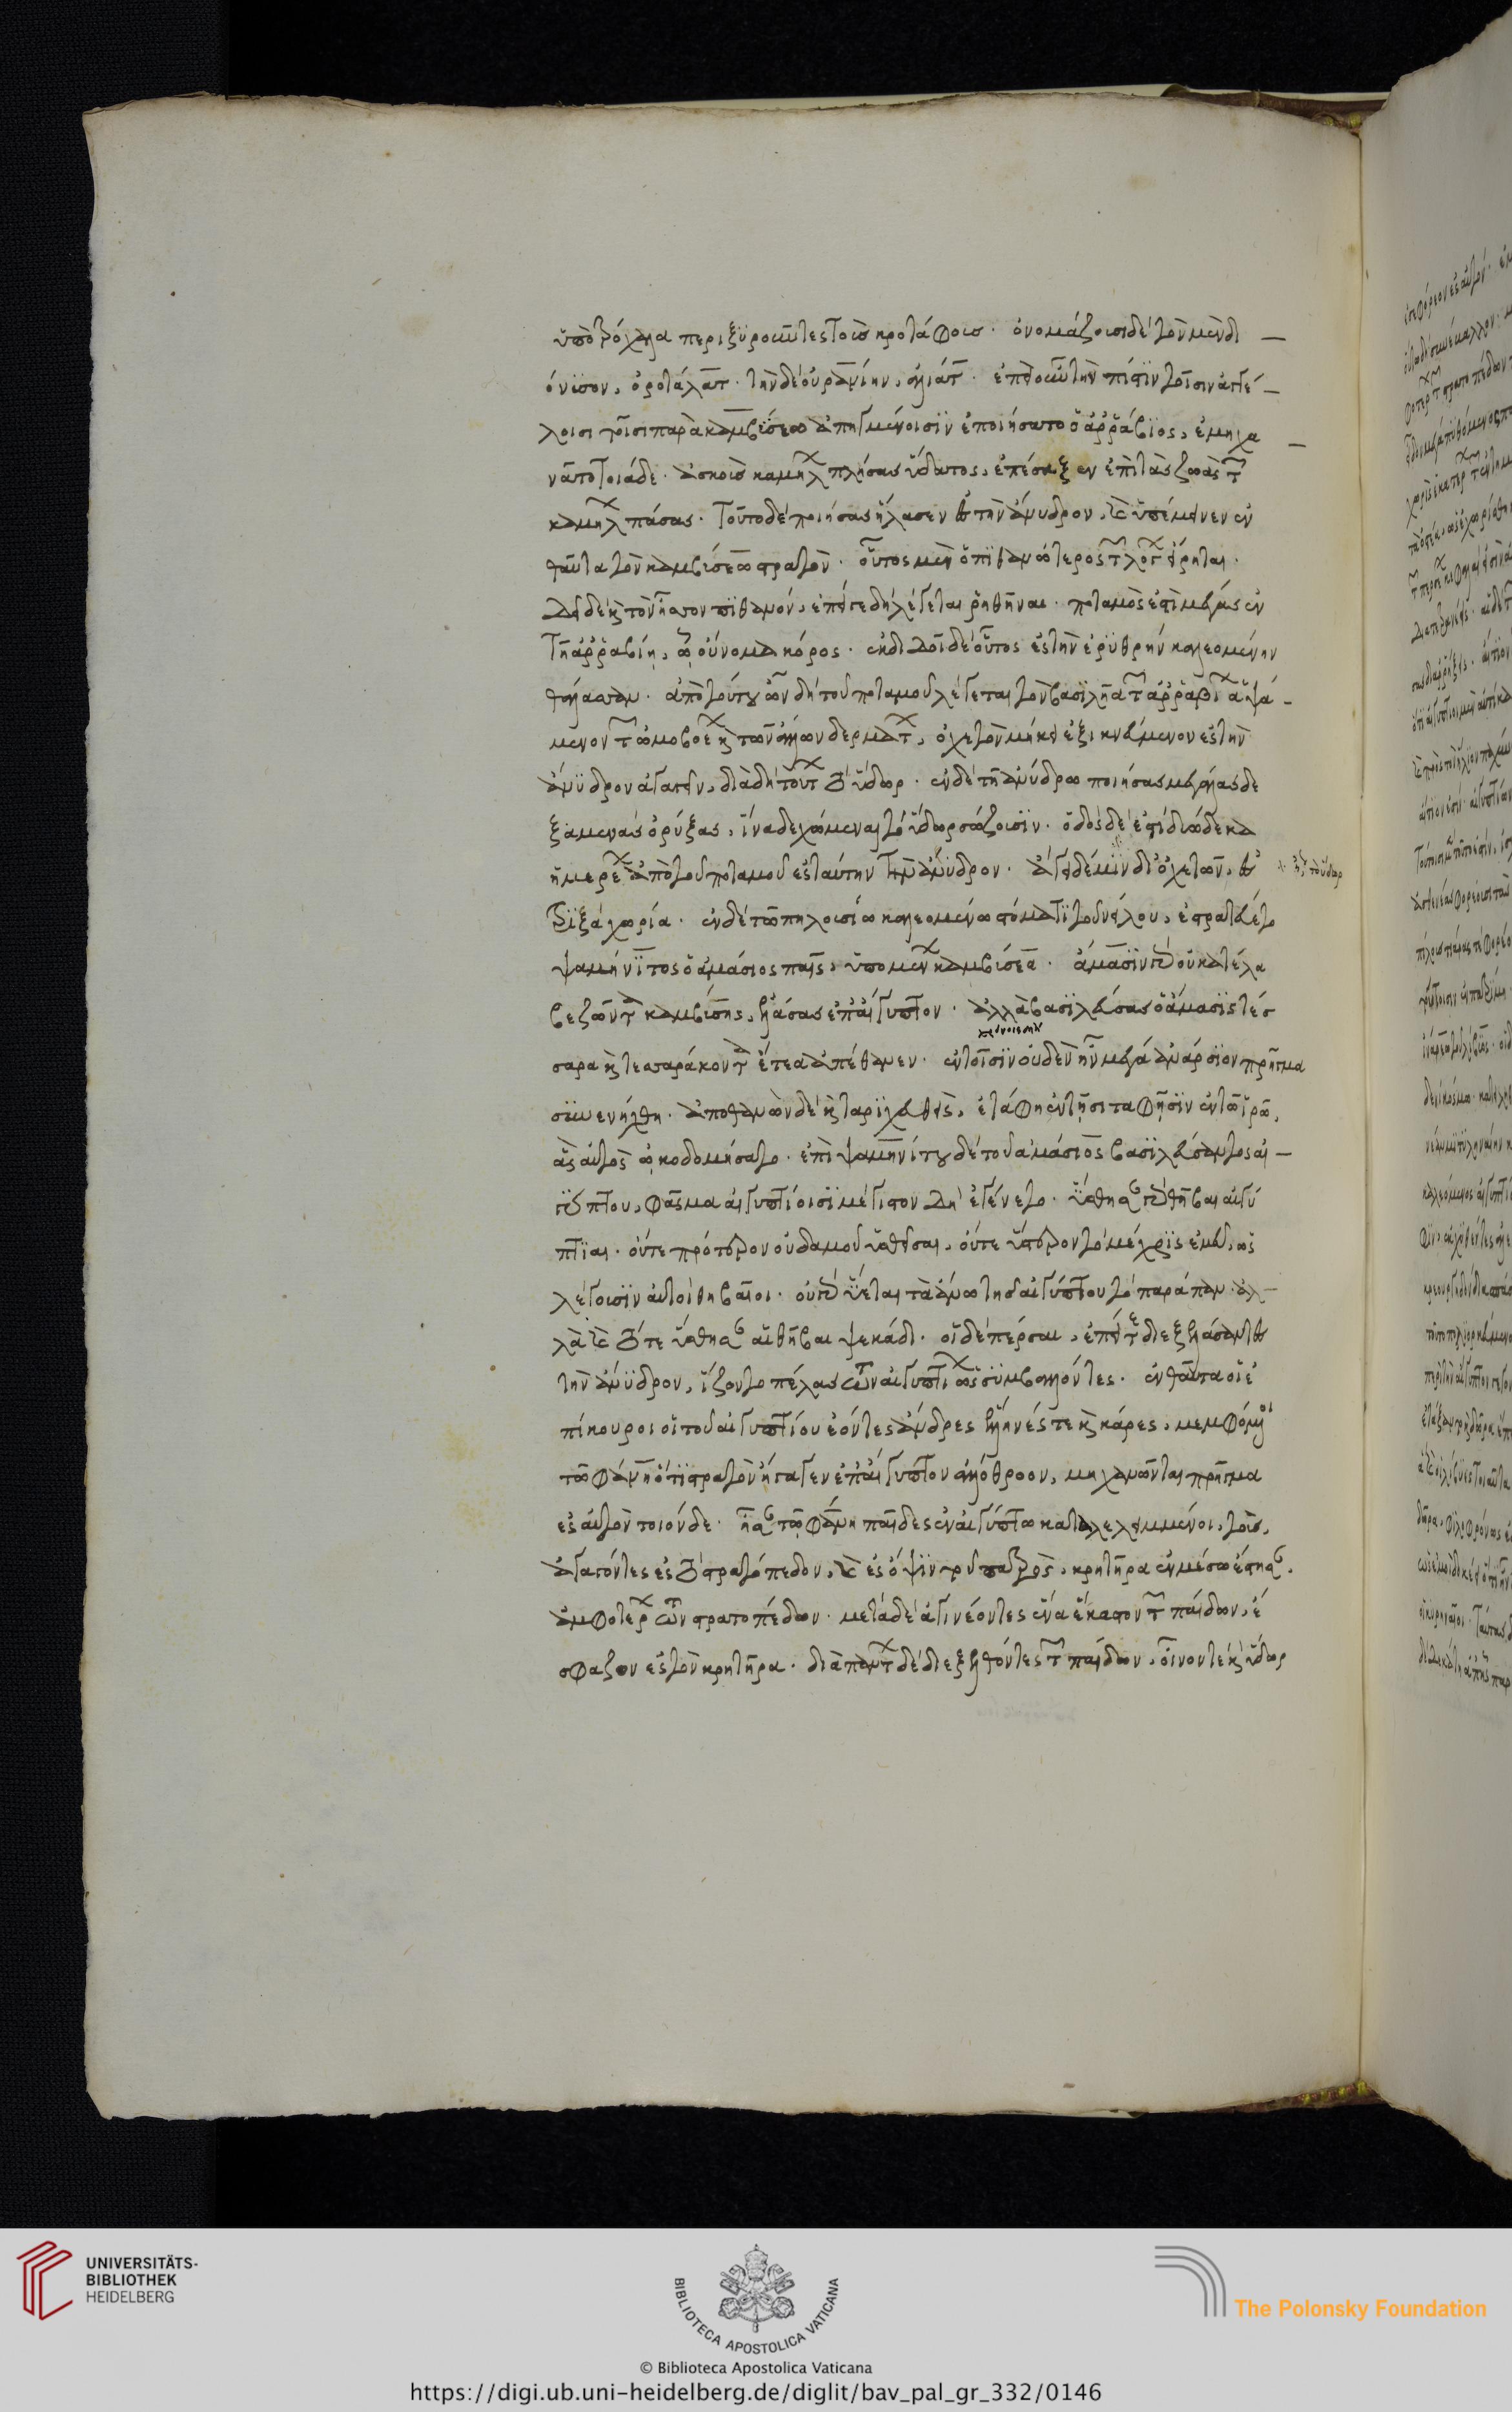 ὑποτρόχαλα περιξυροῦντες τοὺς κροτάφους. ὀνομάζουσι δὲ τὸν μὲν δι
όνυσον, ὀροτάλατ. τὴν δὲ οὐρανίην, ἀλιάτ. ἐπεὶ ὦν τὴν πίστιν τοῖσιν ἀγγέ
λοισι τοῖσι παρὰ καμβύσεω ἀπιγμένοισιν ἐποιήσατο ὁ ἀρράβιος, ἐμηχα
νᾶτο τοιάδε. ἀσκοὺς καμήλων πλήσας ὕδατος, ἐπέσαξεν ἐπὶ τὰς ζωὰς τῶν
καμήλων πάσας. τοῦτο δὲ ποιήσας ἤλασεν ἐς τὴν ἄνυδρον, καὶ ὑπέμενεν ἐν
θαῦτα τὸν καμβύσεω στρατόν. οὗτος μὲν ὁ πιθανώτερος τῶν λόγων εἴρηται.
δεῖ δὲ καὶ τὸν ἧσσον πιθανόν, ἐπεί γε δὴ λέγεται ῥηθῆναι. ποταμός ἐστι μέγας ἐν
τῇ ἀρραβίῃ, τῷ οὔνομα κόρος. ἐκδιδοῖ δὲ οὗτος ἐς τὴν ἐρυθρὴν καλεομένην
θάλασσαν. ἀπὸ τούτου ὦν δὴ τοῦ ποταμοῦ λέγεται τὸν βασιλῆα τῶν ἀρραβίων ἁψά
μενον τῶν ὠμοβοέων καὶ τῶν ἄλλων δερμάτων, ὀχετὸν μήκει ἐξικνεύμενον ἐς τὴν
ἄνυδρον ἀγαγεῖν, διὰ δὴ τούτων τὸ ὕδωρ. ἐν δὲ τῇ ἀνύδρω ποιήσας μεγάλας δε
ξαμενὰς ὀρύξας, ἵνα δεχόμεναι τὸ ὕδωρ σώζουσιν. ὁδὸς δέ ἐστι δυώδεκα
ἡμερέων ἀπὸ τοῦ ποταμοῦ ἐς ταύτην τὴν ἄνυδρον. ἄγειν δέ μιν δι' ὀχετῶν, ἐς
τριξὰ χωρία. ἐν δὲ τῶ πηλουσίω καλεομένω στόματι τοῦ νείλου, ἐστρατεύετο
ψαμήνιτος ὁ ἀμάσιος παῖς, ὑπομένων καμβύσεα. ἄμασιν γὰρ οὐ κατέλα
βε ζῶντα καμβύσης, ἐλάσας ἐπ' αἴγυπτον. ἀλλὰ βασιλεύσας ὁ ἄμασις τέσ
σαρα καὶ τεσσαράκοντα ἔτεα ἀπέθανεν. ἐν τοῖσιν οὐδέν ἦν μέγα ἀνάρσιον πρῆγμα
συνενήχθη. ἀποθανὼν δὲ καὶ ταριχευθεὶς, ἐτάφη ἐν τῆσι ταφῆσιν ἐν τῶ ἱρῶ,
ἃς αὐτὸς ὠκοδομήσατο. ἐπὶ ψαμηνίτου δὲ τοῦ ἀμάσιος βασιλεύσαντος αἰ
γύπτου, φάσμα αἰγυπτίοισι μέγιστον δὴ ἐγένετο. ὕσθησαν γὰρ θῆβαι αἰγύ
πτιαι. οὔτε πρότερον οὐδαμοῦ ὑσθεῖσαι, οὔτε ὕστερον τὸ μέχρις ἐμεῦ, ὡς
λέγουσιν αὐτοὶ θηβαῖοι. οὐ γὰρ ὕεται τὰ ἄνω τῆς αἰγύπτου τὸ παράπαν. ἀλ
λὰ καὶ τότε ὕσθησαν αἱ θῆβαι ψεκάδι. οἱ δὲ πέρσαι, ἐπεί τε διεξελάσαντες
τὴν ἄνυδρον, ἵζοντο πέλας τῶν αἰγυπτίων ὡς συμβαλόντες. ἐνθαῦτα οἱ ἐ
πίκουροι οἱ τοῦ αἰγυπτίου ἐόντες ἄνδρες ἕλληνές τε καὶ κάρες, μεμφόμενοι
τῶ φάνῃ ὅτι στρατὸν ἤγαγεν ἐπ' αἴγυπτον ἀλλόθροον, μηχανῶνται πρῆγμα
ἐς αὐτὸν τοιόνδε. ἦσαν τῶ φάνῃ παῖδες ἐν αἰγύπτω καταλελειμμένοι, τοὺς,
ἀγαγόντες ἐς τὸ στρατόπεδον, καὶ ἐς ὄψιν τοῦ πατρὸς, κρητῆρα ἐν μέσω ἔστησαν.
ἀμφοτέρων τῶν στρατοπέδων. μετὰ δὲ ἀγινέοντες ἕνα ἕκαστον τῶν παίδων, ἔ
σφαζον ἐς τὸν κρητῆρα. διὰ πάντων δὲ διεξελθόντες τῶν παίδων, οἶνόν τε καὶ ὕδωρ
UNIVERSITÄTS-
BIBLIOTHEK
HEIDELBERG
BIBLIOTECA APOSTOLICA VATICANA
© Biblioteca Apostolica Vaticana
The Polonsky Foundation
https://digi.ub.uni-heidelberg.de/diglit/bav_pal_gr_332/0146